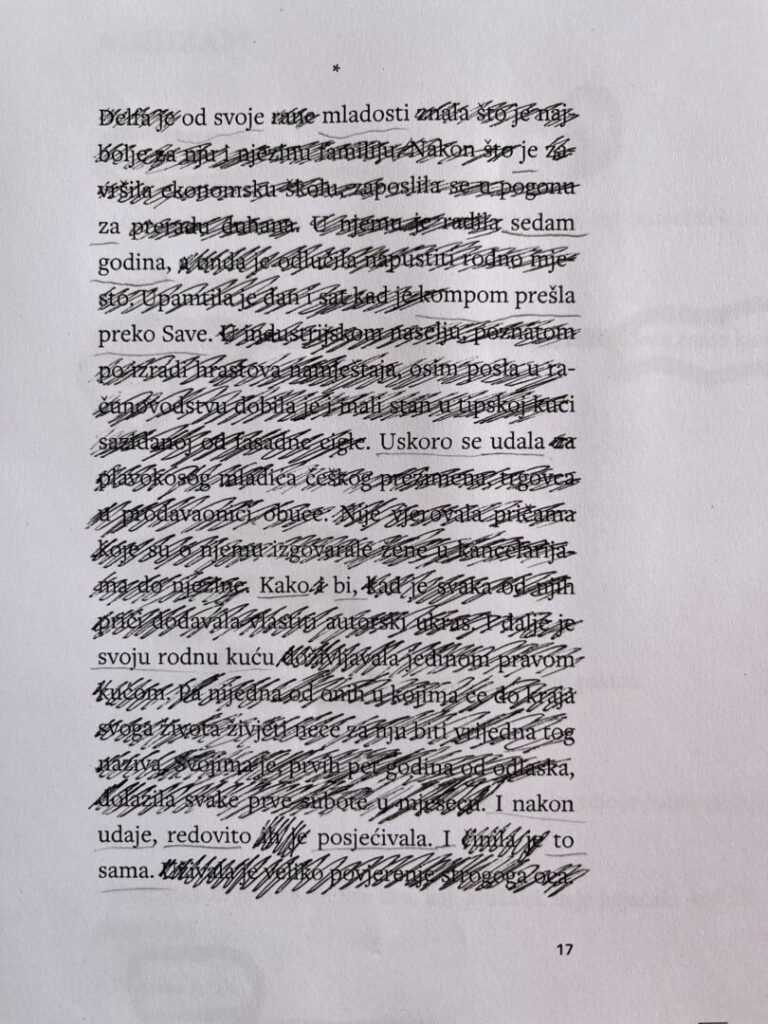 *
Delfa je od svoje rane mladosti znala što je naj-
bolje za nju i njezinu familiju. Nakon što je za-
vršila ekonomsku školu, zaposlila se u pogonu
za preradu duhana. U njemu je radila sedam
godina, a onda je odlučila napustiti rodno mje-
sto. Upamtila je dan i sat kad je kompom prešla
preko Save. U industrijskom naselju, poznatom
po izradi hrastova namještaja, osim posla u ra-
čunovodstvu dobila je i mali stan u tipskoj kući
sazidanoj od fasadne cigle. Uskoro se udala za
plavokosog mladića češkog prezimena, trgovca
u prodavaonici obuće. Nije vjerovala pričama
koje su o njemu izgovarale žene u kancelarija-
ma do njezine. Kako i bi, kad je svaka od njih
priči dodavala vlastiti autorski ukras. I dalje je
svoju rodnu kuću doživljavala jedinom pravom
kućom. Pa nijedna od onih u kojima će do kraja
svoga života živjeti neće za nju biti vrijedna tog
naziva. Svojima je, prvih pet godina od odlaska,
dolazila svake prve subote u mjesecu. I nakon
udaje, redovito ih je posjećivala. I činila je to
sama. Uživala je veliko povjerenje strogoga oca.
17